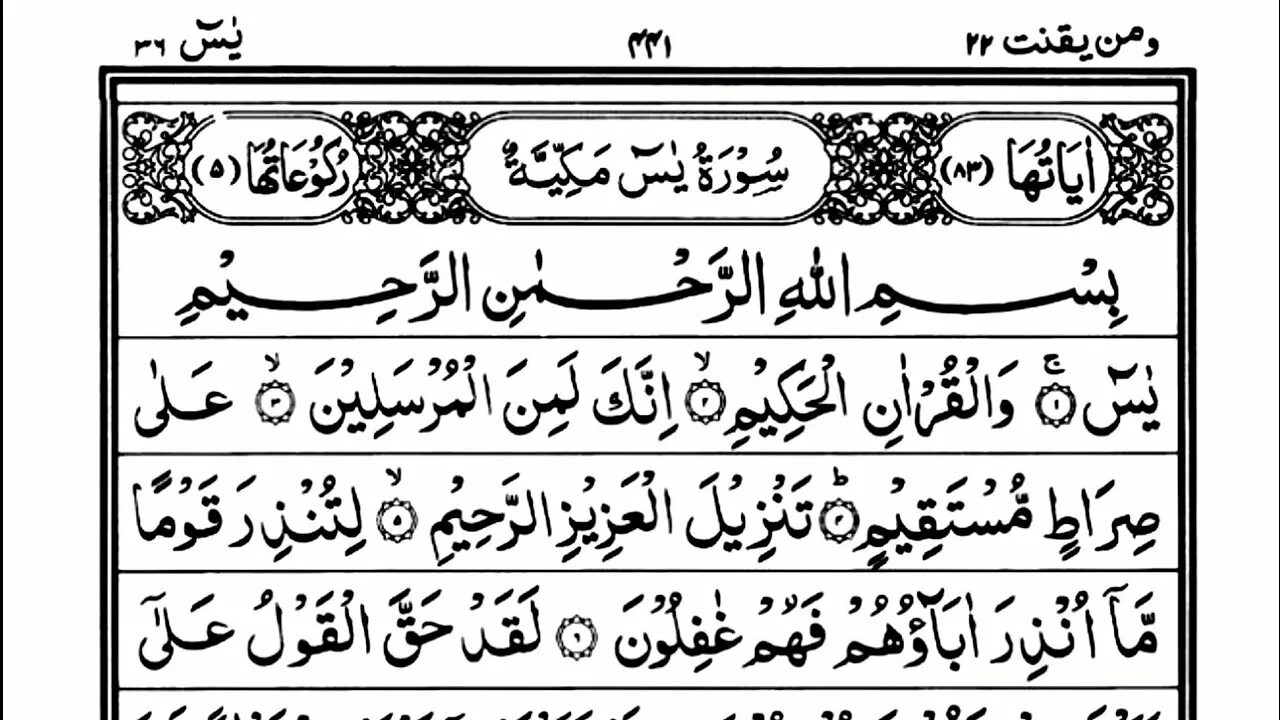 ومن يقنت ٢٢ ٤٤١ يٰسٓ ٣٦
اٰيَاتُهَا (٨٣) سُوْرَةُ يٰسٓ مَكِّيَّةٌ رُكُوْعَاتُهَا (٥)
بِسْمِ اللّٰهِ الرَّحْمٰنِ الرَّحِيْمِ
يٰسٓ ۚ‏﴿١﴾ وَالْقُرْاٰنِ الْحَكِيْمِ ۙ‏﴿٢﴾ اِنَّكَ لَمِنَ الْمُرْسَلِيْنَ ۙ‏﴿٣﴾ عَلٰى
صِرَاطٍ مُّسْتَقِيْمٍ ؕ‏﴿٤﴾ تَنْزِيْلَ الْعَزِيْزِ الرَّحِيْمِ ۙ‏﴿٥﴾ لِتُنْذِرَ قَوْمًا
مَّاۤ اُنْذِرَ اٰبَآؤُهُمْ فَهُمْ غٰفِلُوْنَ ﴿٦﴾ لَقَدْ حَقَّ الْقَوْلُ عَلٰٓى